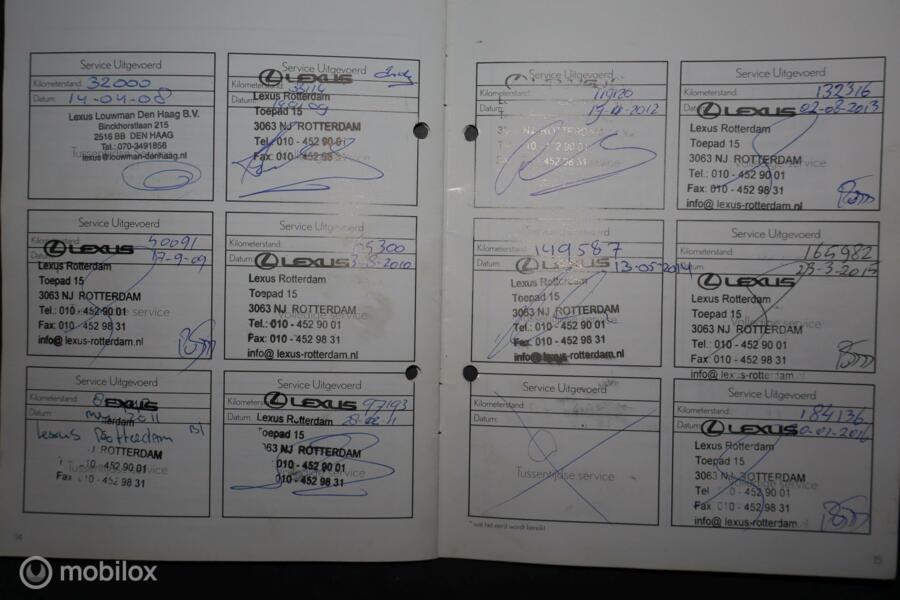 Service Uitgevoerd
Kilometerstand: 32000
Datum: 14-04-08
Lexus Louwman Den Haag B.V.
Binckhorstlaan 215
2516 BB DEN HAAG
Tel.: 070-3491856
Tussentijdse service
lexus@louwman-denhaag.nl
Service Uitgevoerd
LEXUS
Kilometerstand:
Lexus Rotterdam
Datum:
Toepad 15
3063 NJ ROTTERDAM
Tel.: 010 - 452 90 01
Fax: 010 - 452 98 31
Service Uitgevoerd
Kilometerstand: 50091
LEXUS
Datum: 17-9-09
Lexus Rotterdam
Toepad 15
3063 NJ ROTTERDAM
Tel.: 010 - 452 90 01
Volledige service
Fax: 010 - 452 98 31
info@lexus-rotterdam.nl
Service Uitgevoerd
Kilometerstand:
LEXUS
Datum:
Lexus Rotterdam
Toepad 15
3063 NJ ROTTERDAM
Tel.: 010 - 452 90 01
Volledige service
Fax: 010 - 452 98 31
info@lexus-rotterdam.nl
Service Uitgevoerd
Kilometerstand:
LEXUS
Datum: 2011
Lexus Rotterdam
ROTTERDAM
010 - 452 90 01
Tussentijdse service
Fax 010 - 452 98 31
Service Uitgevoerd
Kilometerstand: 97193
LEXUS
Datum:
Lexus Rotterdam
Toepad 15
3063 NJ ROTTERDAM
010 - 452 90 01
Volledige service
010 - 452 98 31
14
Service Uitgevoerd
Kilometerstand:
Datum:
NJ ROTTERDAM
452 98 31
service
Service Uitgevoerd
Kilometerstand: 132316
Datum: 02-08-2013
LEXUS
Lexus Rotterdam
Toepad 15
3063 NJ ROTTERDAM
Volledige service
Tel.: 010 - 452 90 01
Fax: 010 - 452 98 31
info@lexus-rotterdam.nl
Service Uitgevoerd
Kilometerstand: 149587
Datum: 13-05-2014
LEXUS
Lexus Rotterdam
Toepad 15
3063 NJ ROTTERDAM
Tel.: 010 - 452 90 01
Fax: 010 - 452 98 31
info@lexus-rotterdam.nl
Service Uitgevoerd
Kilometerstand: 165982
Datum: 23-3-2015
LEXUS
Lexus Rotterdam
Toepad 15
3063 NJ ROTTERDAM
Volledige service
Tel.: 010 - 452 90 01
Fax: 010 - 452 98 31
info@lexus-rotterdam.nl
Service Uitgevoerd
Kilometerstand:
Datum:
Tussentijdse service
* wat het eerst wordt bereikt
Service Uitgevoerd
Kilometerstand: 184136
Datum:
LEXUS
Lexus Rotterdam
Toepad 15
3063 NJ ROTTERDAM
Volledige service
Tel 010 - 452 90 01
Fax: 010 - 452 98 31
info@lexus-rotterdam.nl
15
mobilox